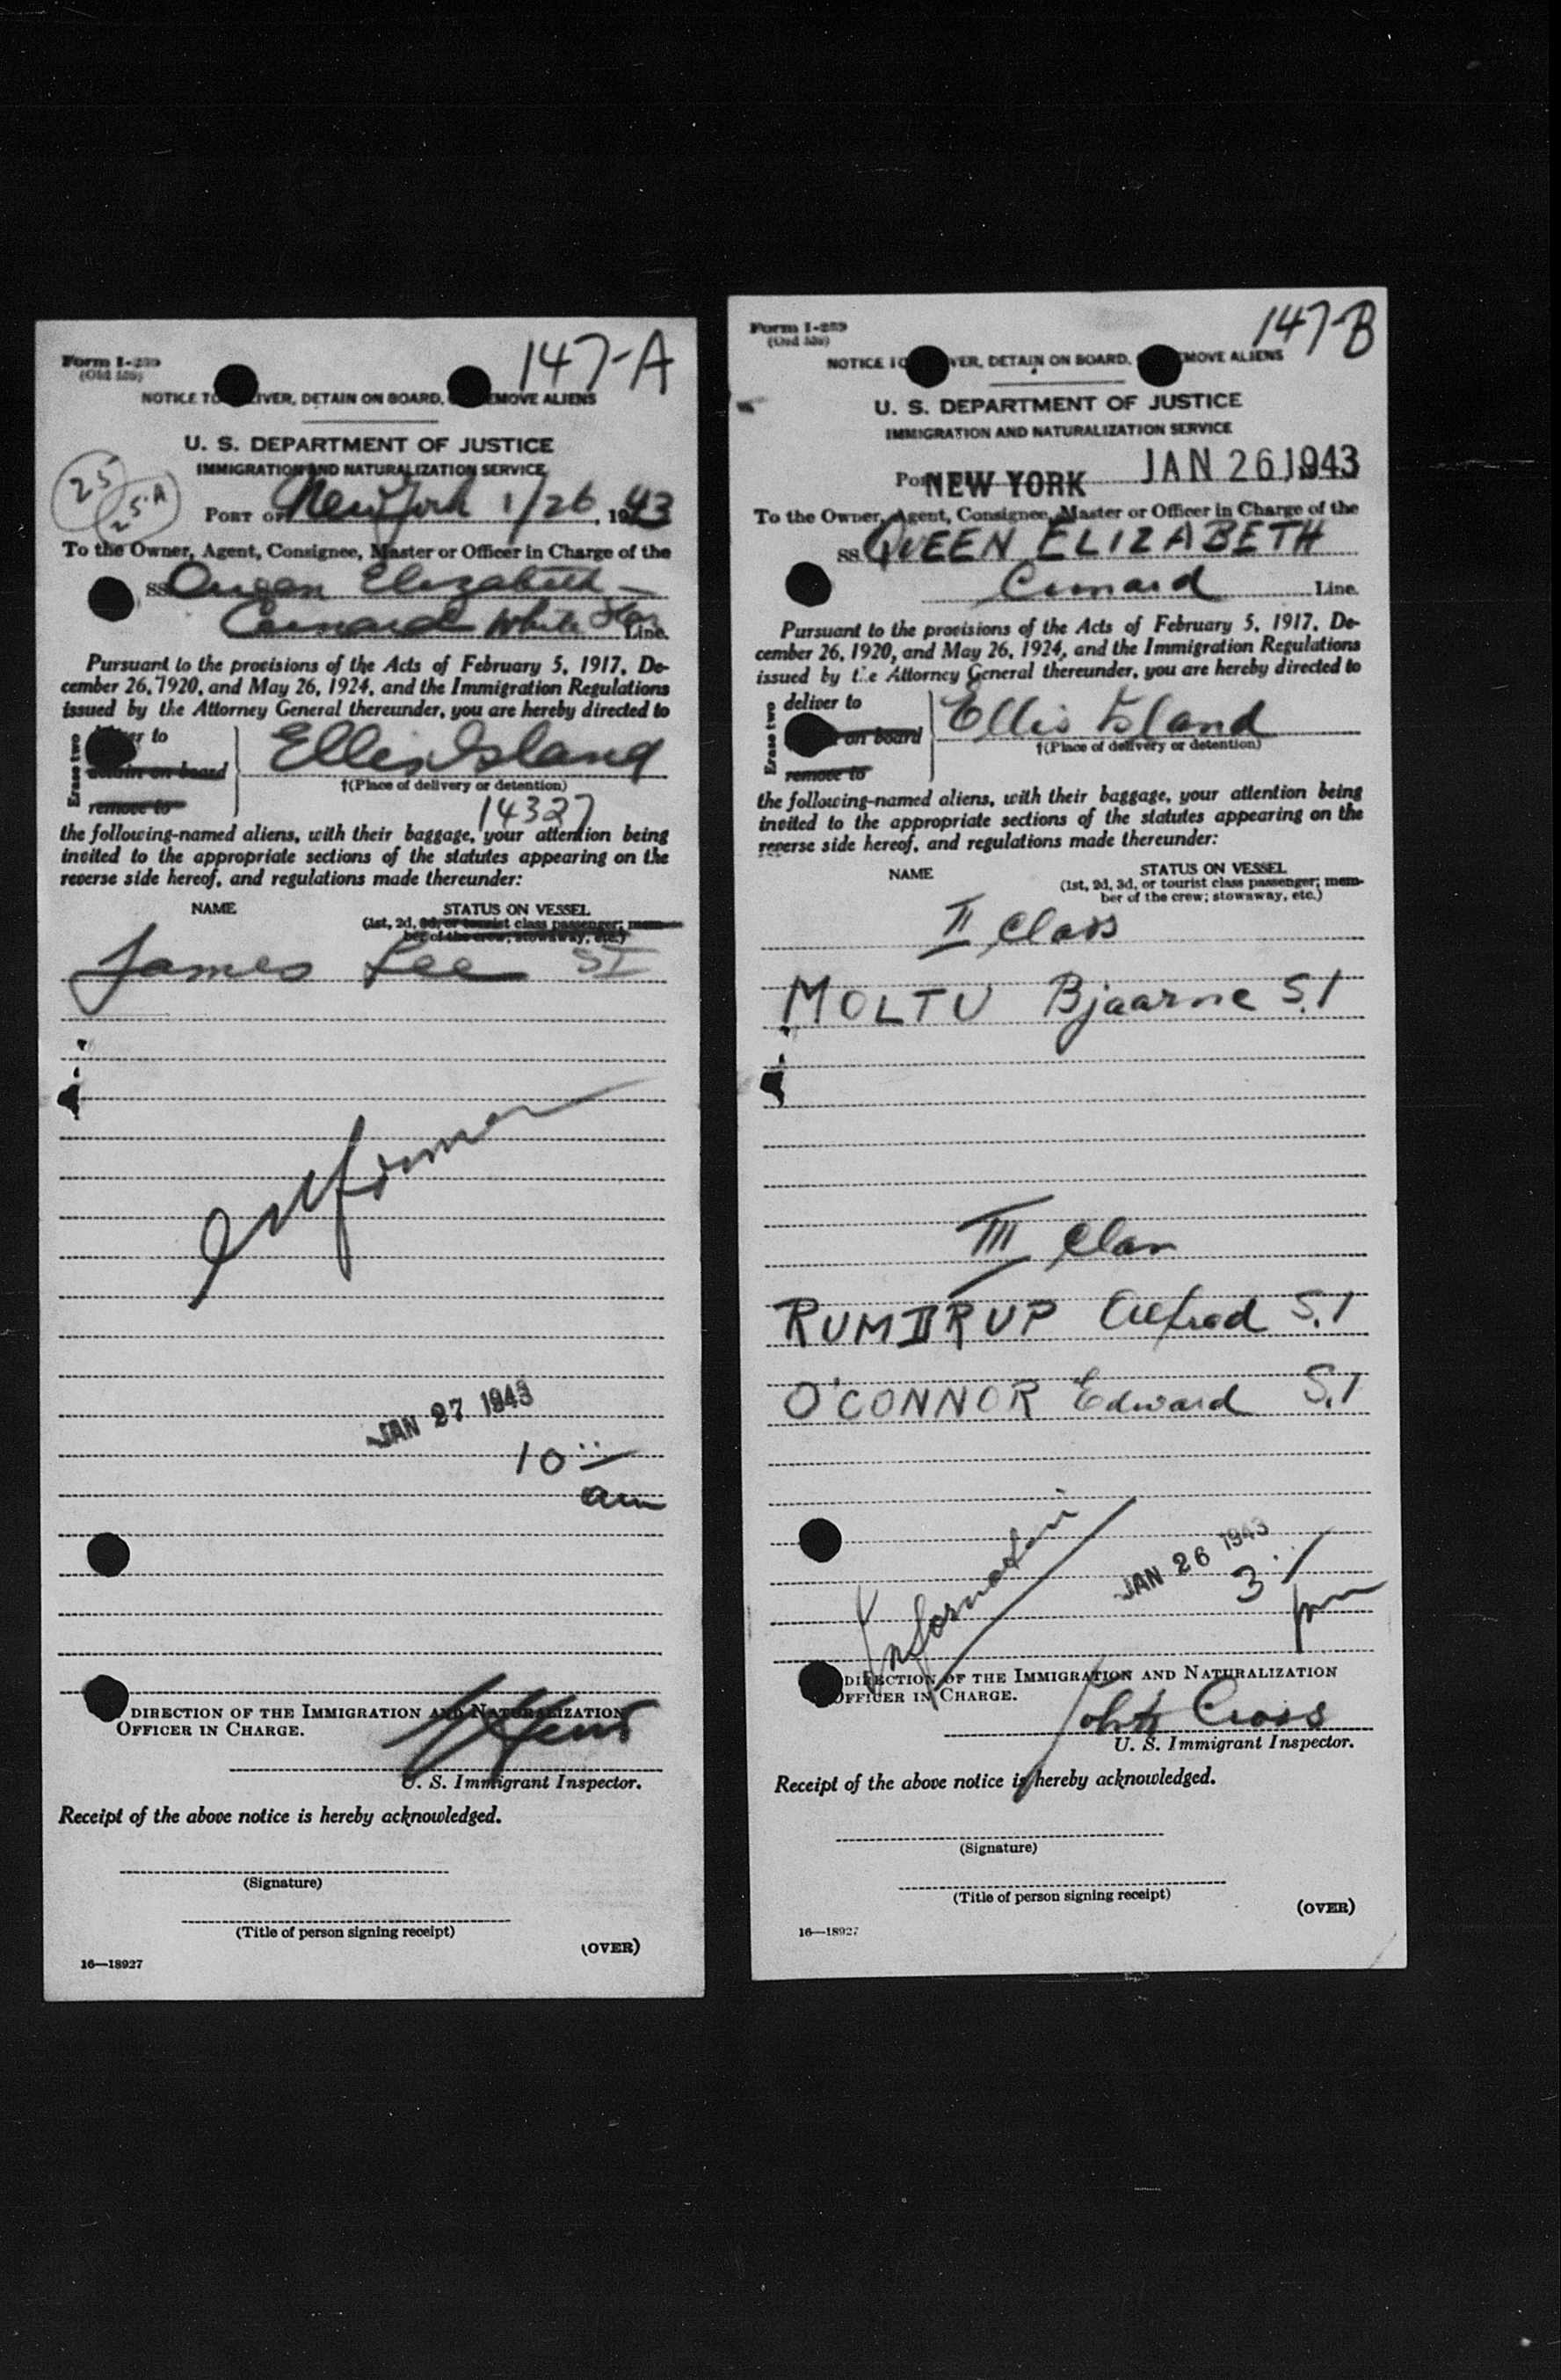 147-A
Form I-259
(Old 539)
NOTICE TO DELIVER, DETAIN ON BOARD, OR REMOVE ALIENS
U. S. DEPARTMENT OF JUSTICE
IMMIGRATION AND NATURALIZATION SERVICE
25
25A
PORT OF New York 1/26, 1943
To the Owner, Agent, Consignee, Master or Officer in Charge of the
SS Queen Elizabeth
Cunard White Star Line.
Pursuant to the provisions of the Acts of February 5, 1917, De-
cember 26, 1920, and May 26, 1924, and the Immigration Regulations
issued by the Attorney General thereunder, you are hereby directed to
Erase two
deliver to
detain on board
remove to
Ellis Island
†(Place of delivery or detention)
14327
the following-named aliens, with their baggage, your attention being
invited to the appropriate sections of the statutes appearing on the
reverse side hereof, and regulations made thereunder:
NAME STATUS ON VESSEL
(1st, 2d, 3d, or tourist class passenger; mem-
ber of the crew; stowaway, etc.)
James Lee SI
JAN 27 1943
10
am
DIRECTION OF THE IMMIGRATION AND NATURALIZATION
OFFICER IN CHARGE.
U. S. Immigrant Inspector.
Receipt of the above notice is hereby acknowledged.
(Signature)
(Title of person signing receipt)
(OVER)
16—18927
147-B
Form I-259
(Old 539)
NOTICE TO DELIVER, DETAIN ON BOARD, OR REMOVE ALIENS
U. S. DEPARTMENT OF JUSTICE
IMMIGRATION AND NATURALIZATION SERVICE
NEW YORK JAN 26 1943
To the Owner, Agent, Consignee, Master or Officer in Charge of the
SS QUEEN ELIZABETH
Cunard Line.
Pursuant to the provisions of the Acts of February 5, 1917, De-
cember 26, 1920, and May 26, 1924, and the Immigration Regulations
issued by the Attorney General thereunder, you are hereby directed to
Erase two
deliver to
on board
remove to
Ellis Island
†(Place of delivery or detention)
the following-named aliens, with their baggage, your attention being
invited to the appropriate sections of the statutes appearing on the
reverse side hereof, and regulations made thereunder:
NAME STATUS ON VESSEL
(1st, 2d, 3d, or tourist class passenger; mem-
ber of the crew; stowaway, etc.)
II Class
MOLTU Bjaarne S.I
III Class
RUMDRUP Alfred S.I
O'CONNOR Edward S.I
Information
JAN 26 1943
3
pm
DIRECTION OF THE IMMIGRATION AND NATURALIZATION
OFFICER IN CHARGE.
John Cross
U. S. Immigrant Inspector.
Receipt of the above notice is hereby acknowledged.
(Signature)
(Title of person signing receipt)
(OVER)
16—18927